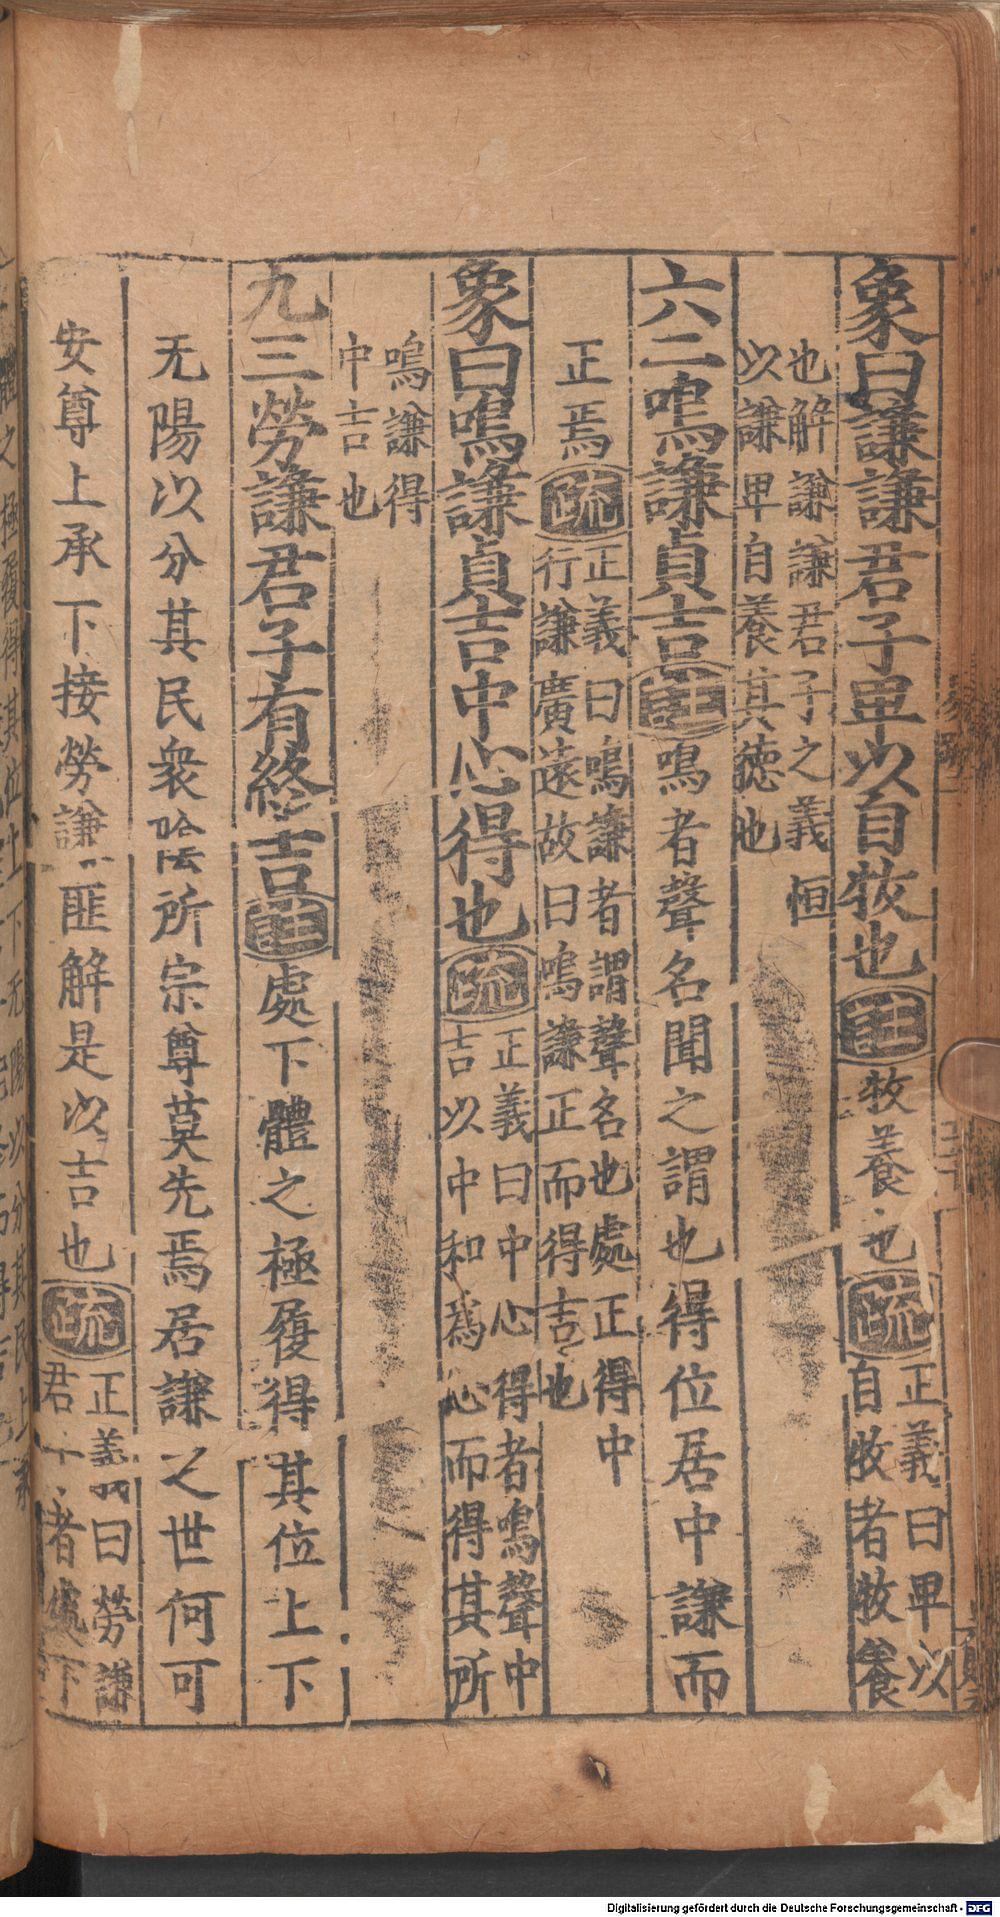 象曰謙謙君子卑以自牧也
註
牧養也
疏
正義曰卑以
自牧者牧養
也解謙謙君子之義恒
以謙卑自養其德也
六二鳴謙貞吉
註
鳴者聲名聞之謂也得位居中謙而
正焉
疏
正義曰鳴謙者謂聲名也處正得中
行謙廣遠故曰鳴謙正而得吉也
象曰鳴謙貞吉中心得也
疏
正義曰中心得者鳴聲中
吉以中和爲心而得其所
鳴謙得
中吉也
九三勞謙君子有終吉
註
處下體之極履得其位上下
无陽以分其民衆陰所宗尊莫先焉居謙之世何可
安尊上承下接勞謙匪解是以吉也
疏
正義曰勞謙
君子者處下
Digitalisierung gefördert durch die Deutsche Forschungsgemeinschaft - DFG